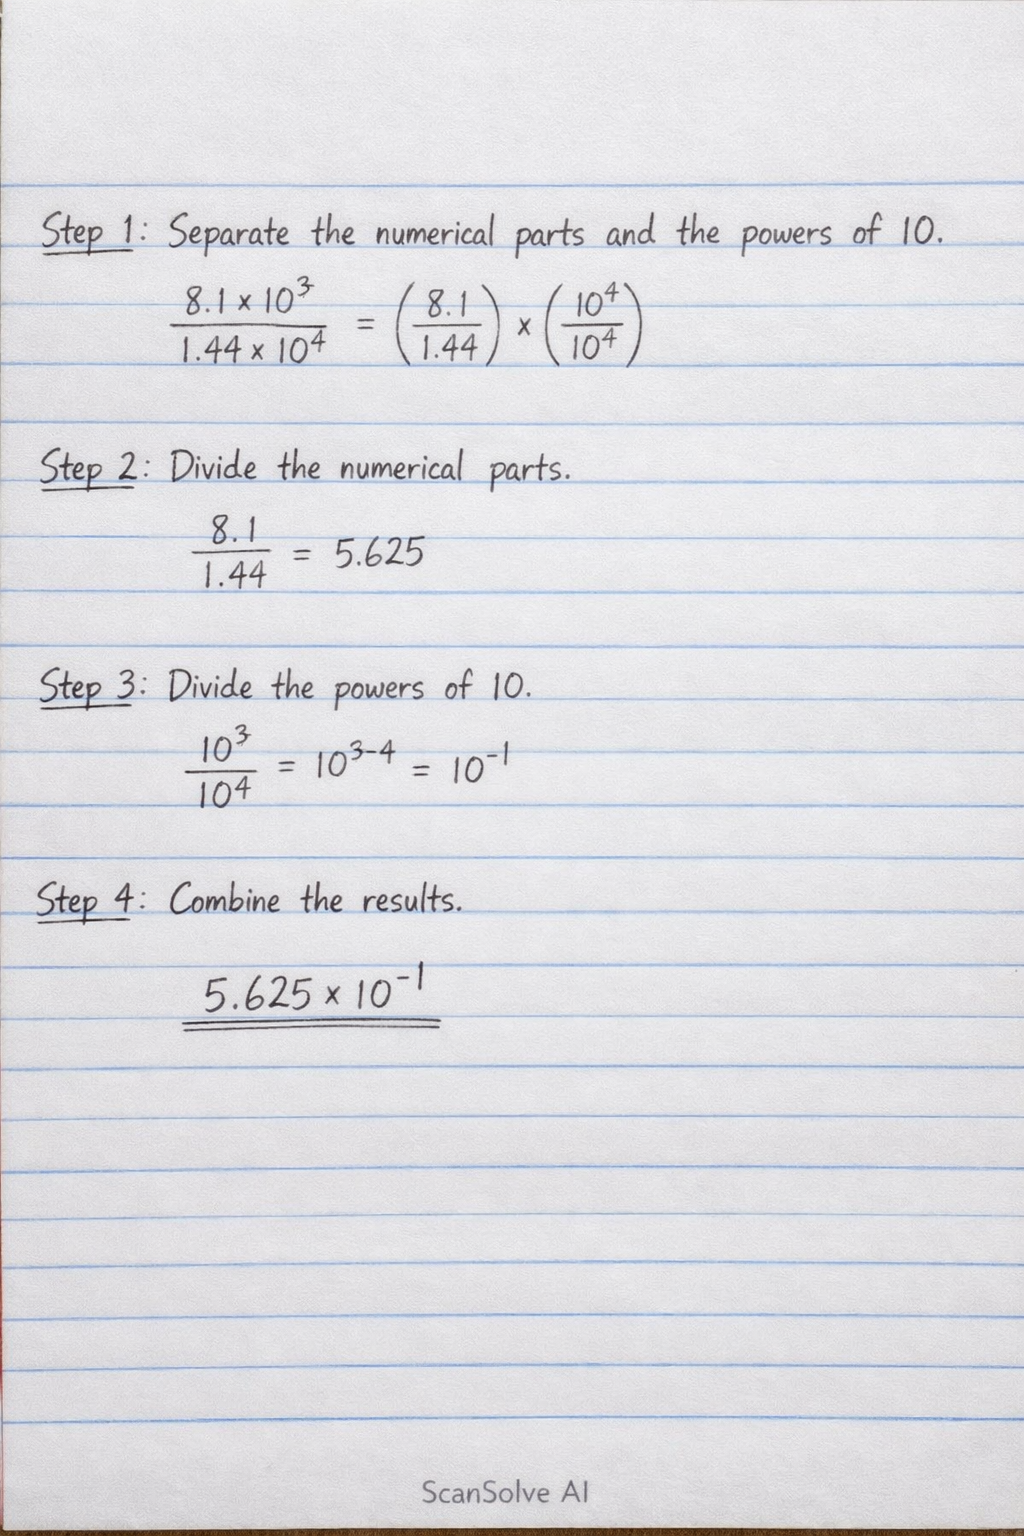 Step 1: Separate the numerical parts and the powers of 10.
8.1 × 10³ / 1.44 × 10⁴ = (8.1 / 1.44) × (10⁴ / 10⁴)
Step 2: Divide the numerical parts.
8.1 / 1.44 = 5.625
Step 3: Divide the powers of 10.
10³ / 10⁴ = 10³⁻⁴ = 10⁻¹
Step 4: Combine the results.
5.625 × 10⁻¹
ScanSolve AI